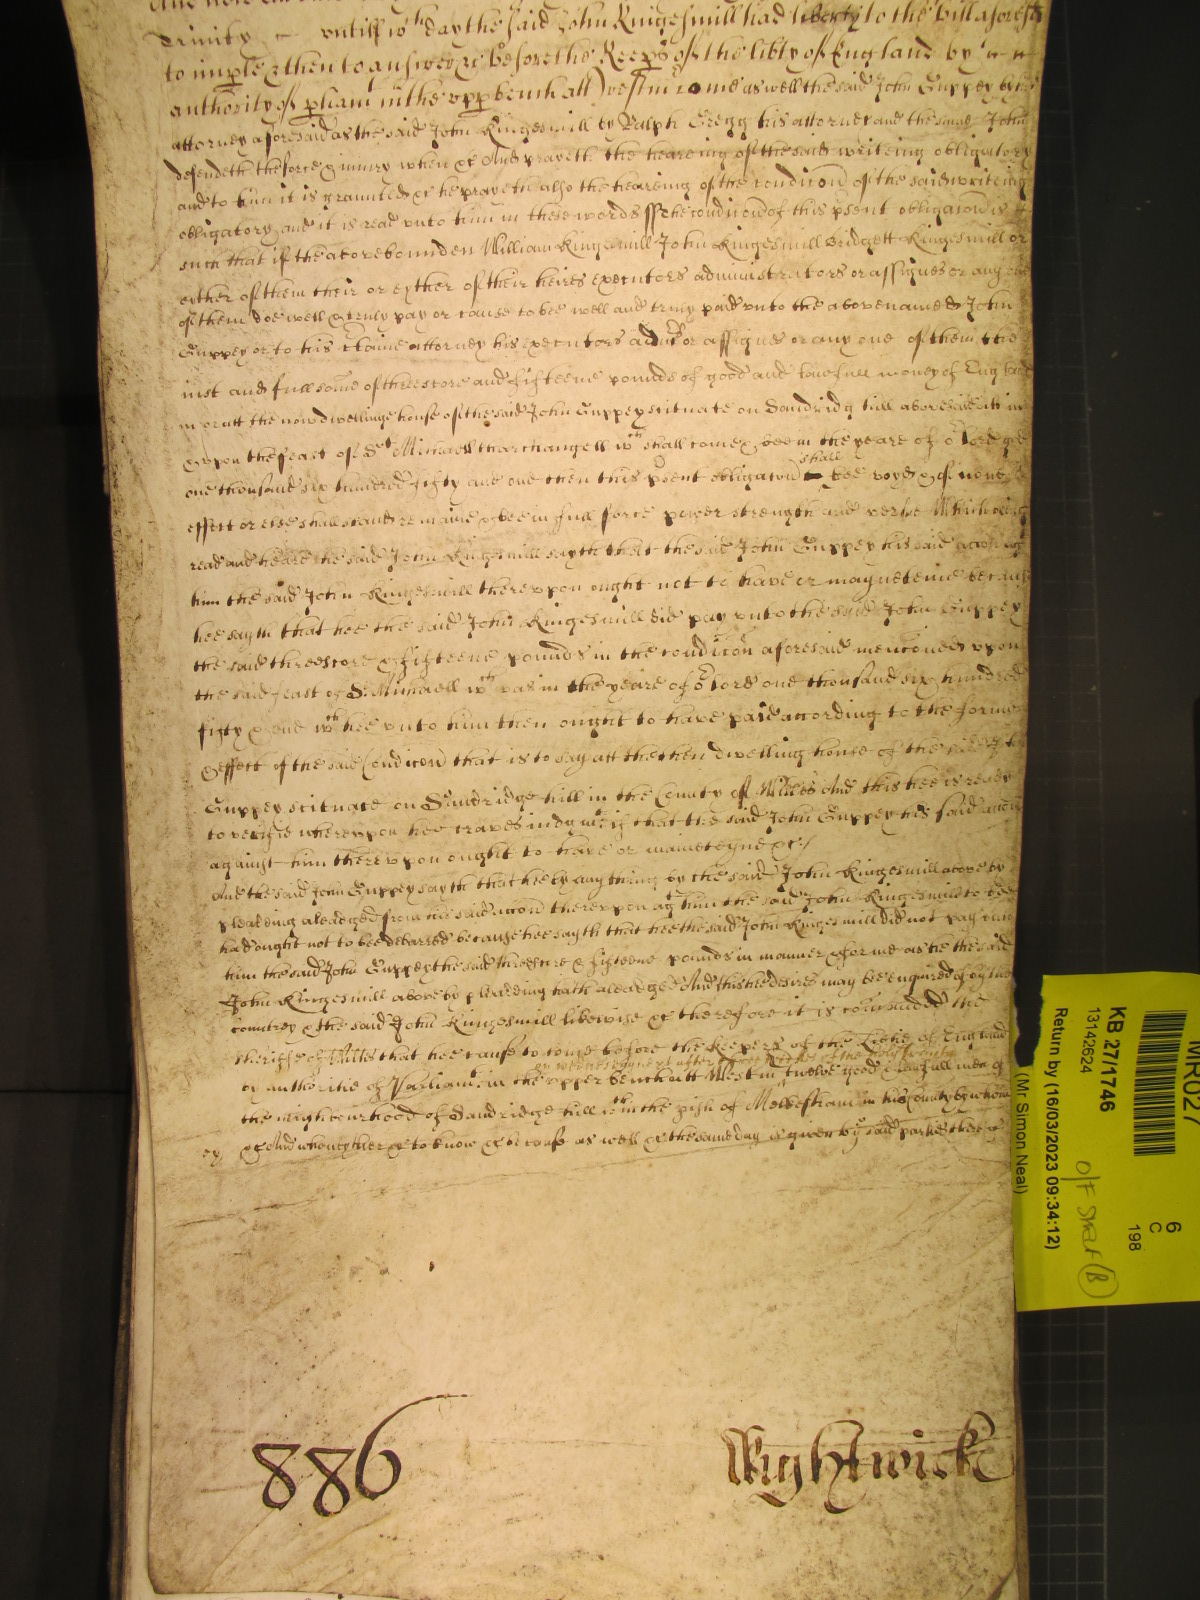 Trinity untill wch day the said John Kingesmill had liberty to the bill aforesd
to imple & then to answer &c before the Keeps of the libty of England by
authority of pliam in the upp bench att Westm come as well the said John Guppey by his
attorney aforesaid as the said John Kingesmill by Ralph Gregg his attorney and the same John
defendeth the force & injury when &c And prayeth the heareing of the said writeing obligatory
and to him it is graunted &c he prayeth also the heareing of the condicon of the said writeing
obligatory and it is read unto him in these words ss The condicon of this psent obligacon is
such that if the abovebounden William Kingesmill John Kingesmill Bridgett Kingesmill or
eyther of them their or eyther of their heires executors administrators or assignes or any one
of them doe well & truly pay or cause to bee well and truly paid unto the abovenamed John
Guppey or to his certaine attorney his executors admrs or assignes or any one of them the
just and full some of threescore and fifteene pounds of good and lawfull money of England
in or att the now dwellinge house of the said John Guppey scituate on Sandridg hill abovesaid in
& upon the feast of St Michaell tharchangell wch shall come & bee in the yeare of or Lord god
one thousand six hundred fifty and one then this psent obligacon shall bee voyd & of none
effect or else shall stand remaine & bee in full force power strength and vertue Which being
read and heard the said John Kingesmill sayth that the said John Guppey his said accon agt
him the said John Kingesmill thereupon ought not to have or mayneteine because
hee sayth that hee the said John Kingesmill did pay unto the said John Guppey
the said threescore & fifteene pounds in the condicon aforesaid menconed upon
the said feast of St Michaell wch was in the yeare of or Lord one thousand six hundred
fifty & one wch hee unto him then ought to have paid according to the forme
& effect of the said Condicon that is to say att the then dwelling house of the said John
Guppey scituate on Sandridge hill in the County of Wiltes And this hee is ready
to verifie whereupon hee craves judgmt if that the said John Guppey his said accon
against him thereupon ought to have or maineteyne &c/
And the said John Guppey sayth that hee by any thing by the said John Kingesmill above by
pleading aleadged from his said accon thereupon agt him the said John Kingesmill to bee
had ought not to bee debarred because hee sayth that hee the said John Kingesmill did not pay unto
him the said John Guppey the said threescore & fifteene pounds in manner & forme as he the said
John Kingesmill above by pleading hath aleadged And this hee desires may bee enquired of by the
countrey & the said John Kingesmill likewise &c therefore it is comaunded the
Sheriffe of Wiltes that hee cause to come before the Keepers of the Libtie of England
by authoritie of Parliamt in the upper bench att Westm twelve good & lawfull men of
the neighbourhood of Sandridge hill wthin the pish of Melkesham in his County by whome
&c And who neyther &c to know &c because as well &c the same day is given to the said parties there &c
886
Wightwick
MR027
KB 27/1746
13142624
6
C
198
O/F Small (B)
Return by (16/03/2023 09:34:12)
(Mr Simon Neal)